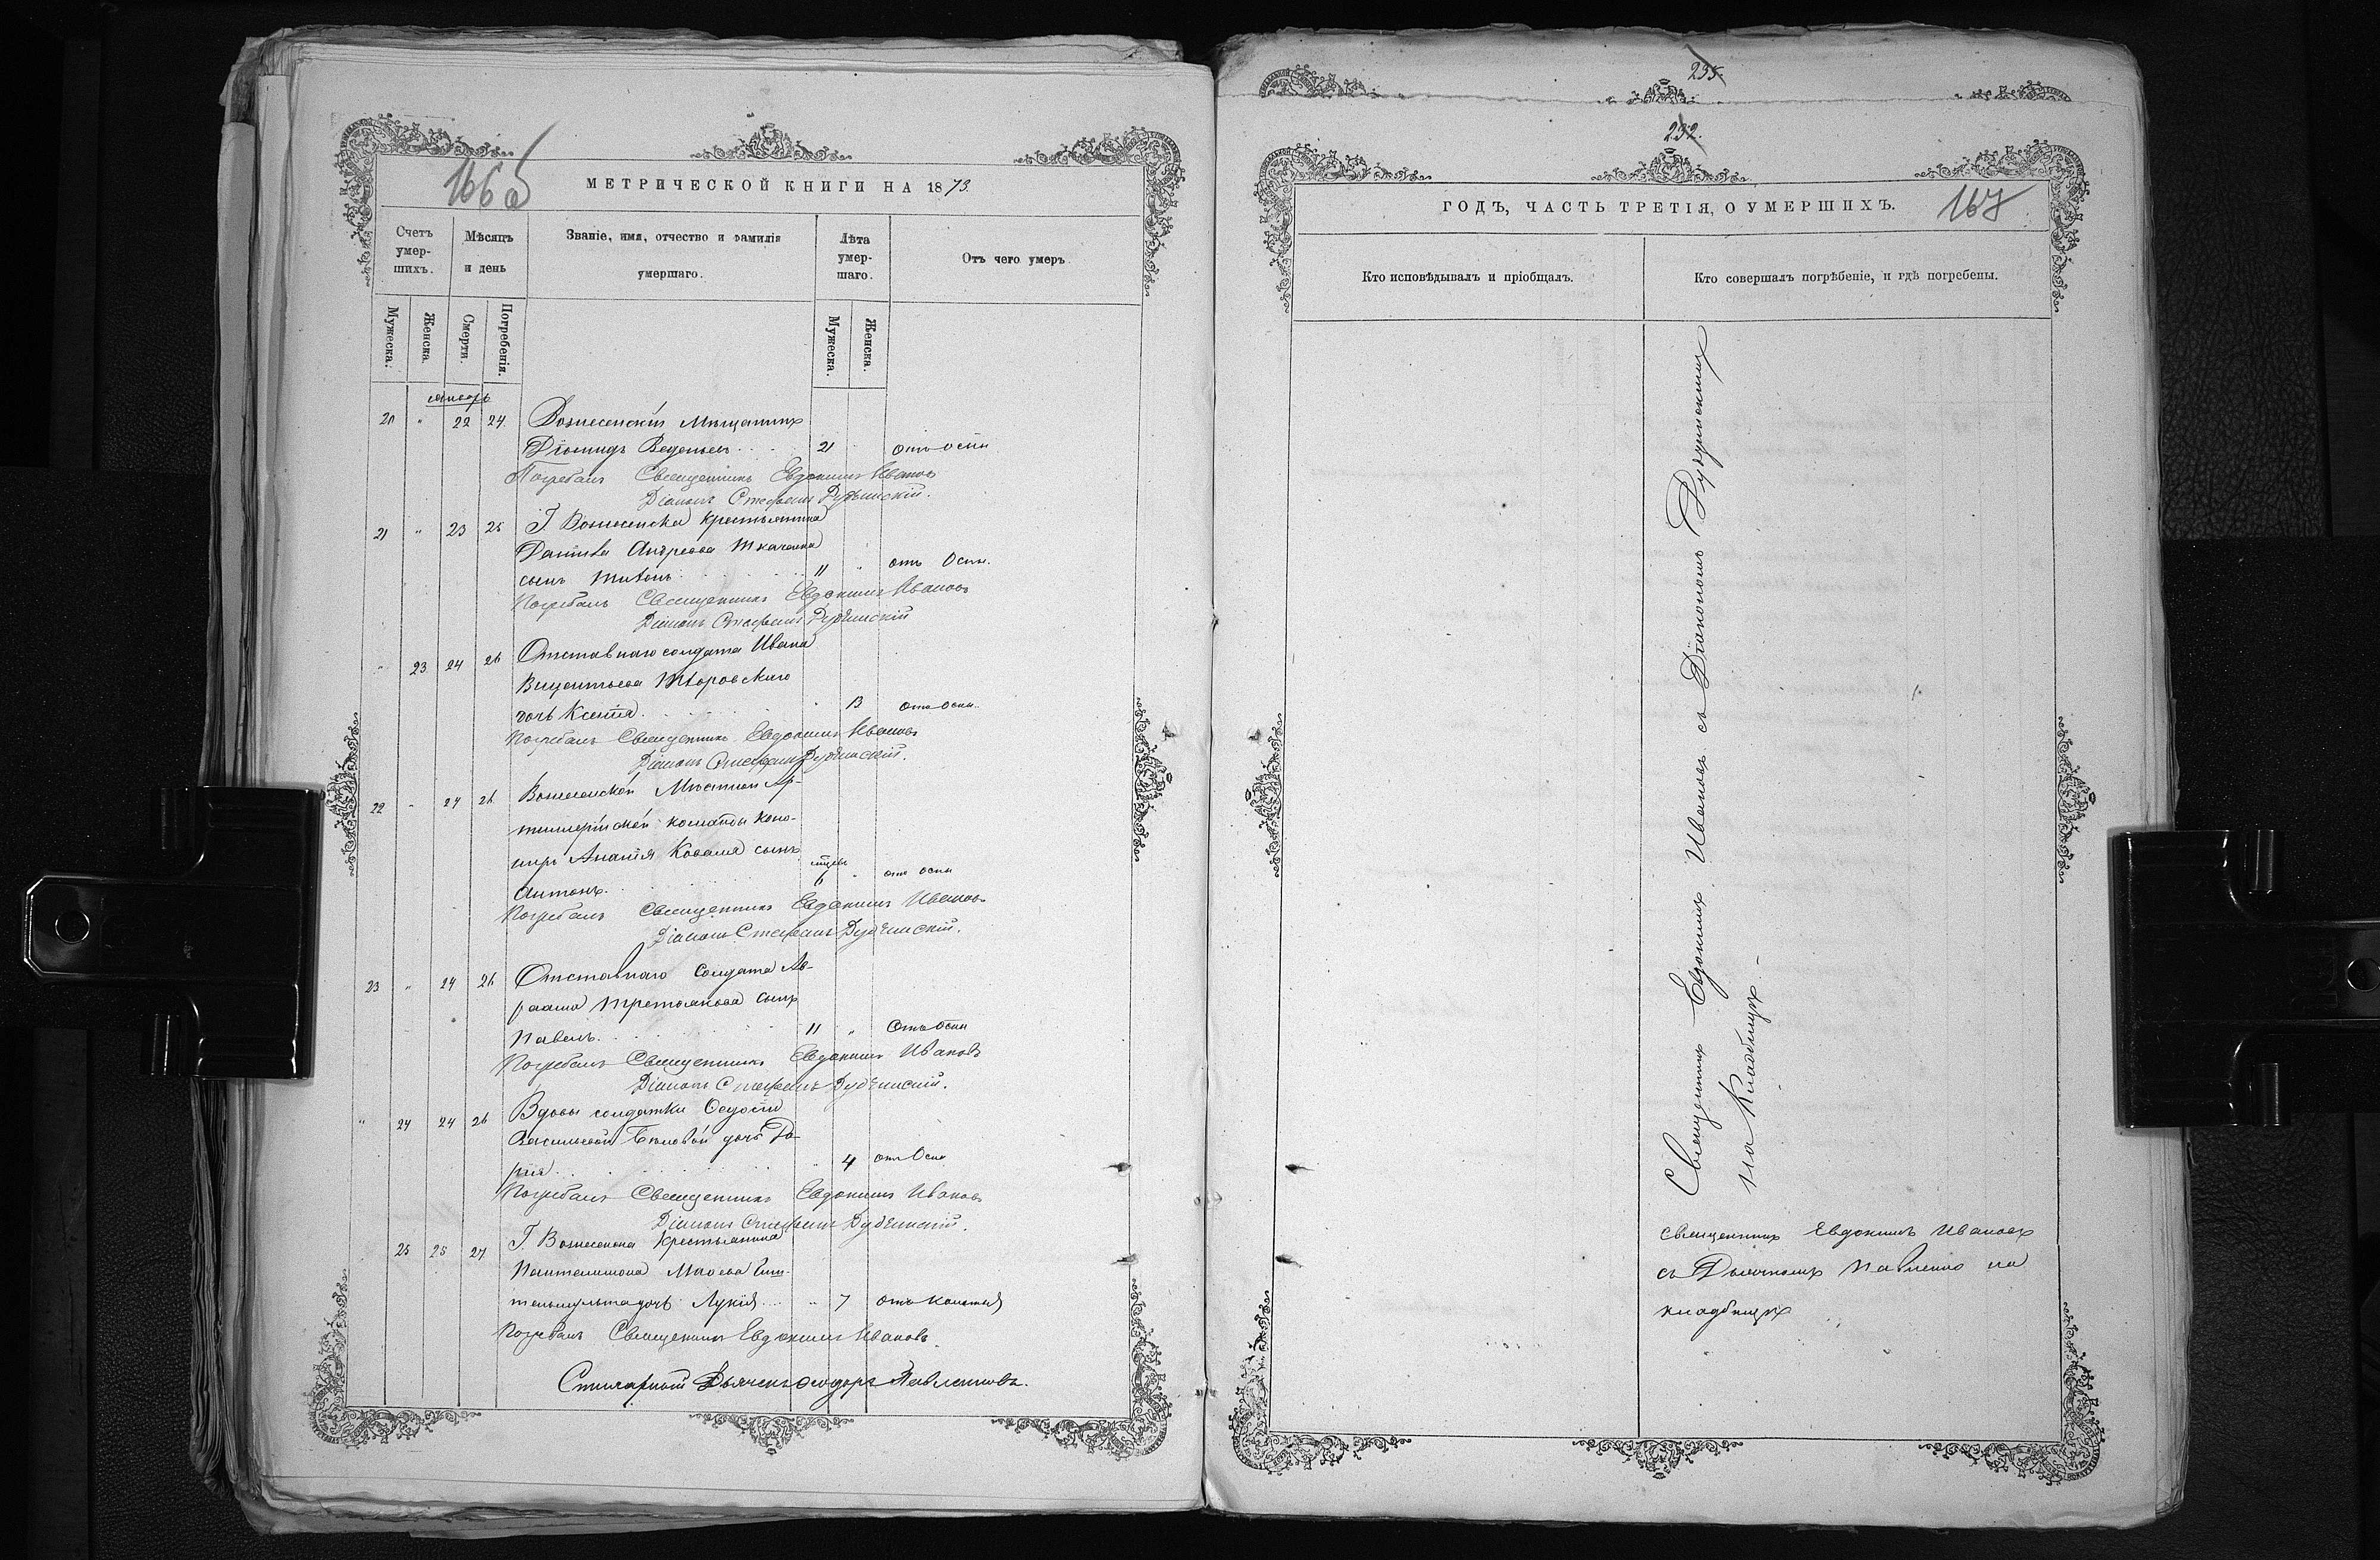 166 об
МЕТРИЧЕСКОЙ КНИГИ НА 1873.
Счетъ умершихъ.
Мѣсяцъ и день
Званіе, имя, отчество и фамилія умершаго.
Лѣта умершаго.
Отъ чего умеръ
Мужеска.
Женска.
Смерти.
Погребенія.
Мужеска.
Женска.
январь
20 " 22 24. Вознесенскій Мѣщанинъ
Діомидъ 21 отъ оспы
Погребалъ Священникъ Евдокимъ Ивановъ
Діаконъ Стефанъ Рудчинскій.
21 " 23 25 Г. Вознесенска крестьянина
Даніила Андреева Ткаченка
сынъ 11 " отъ Оспы.
Погребалъ Священникъ Евдокимъ Ивановъ
Діаконъ Стефанъ Рудчинскій
" 23 24 26 Отставнаго солдата Ивана
Викентьева
дочь Ксенія " 13 отъ оспы.
Погребалъ Священникъ Евдокимъ Ивановъ
Діаконъ Стефанъ Рудчинскій.
22 " 24 26 Вознесенской Мѣстной Ар-
тиллерійской команды
Ананія Коваля сынъ
Антонъ. 11 " отъ оспы
Погребалъ Священникъ Евдокимъ Ивановъ
Діаконъ Стефанъ Рудчинскій.
23 " 24 26 Отставнаго Солдата Ав-
раама Третьякова сынъ
Павелъ. 11 " Отъ Оспы
Погребалъ Священникъ Евдокимъ Ивановъ
Діаконъ Стефанъ Рудчинскій.
" 24 24 26 Вдовы солдатки Ѳедосіи
Васильевой Бѣловой дочь Да-
рія " 4 отъ Оспы
Погребалъ Священникъ Евдокимъ Ивановъ
Діаконъ Стефанъ Рудчинскій.
25 25 27 Г. Вознесенска Крестьянина
Пантелимона
дочь Лукія " 7 отъ
Погребалъ Священникъ Евдокимъ Ивановъ.
Стихарный Дьячекъ Ѳеодоръ Павленковъ.
235.
232.
167
ГОДЪ, ЧАСТЬ ТРЕТІЯ, О УМЕРШИХЪ.
Кто исповѣдывалъ и пріобщалъ.
Кто совершалъ погрѣбеніе, и гдѣ погребены.
Священникъ Евдокимъ Ивановъ съ Діакономъ Рудчинскимъ
на Кладбищѣ.
священникъ Евдокимъ Ивановъ
съ Дьячкомъ Павленко на
кладбищѣ